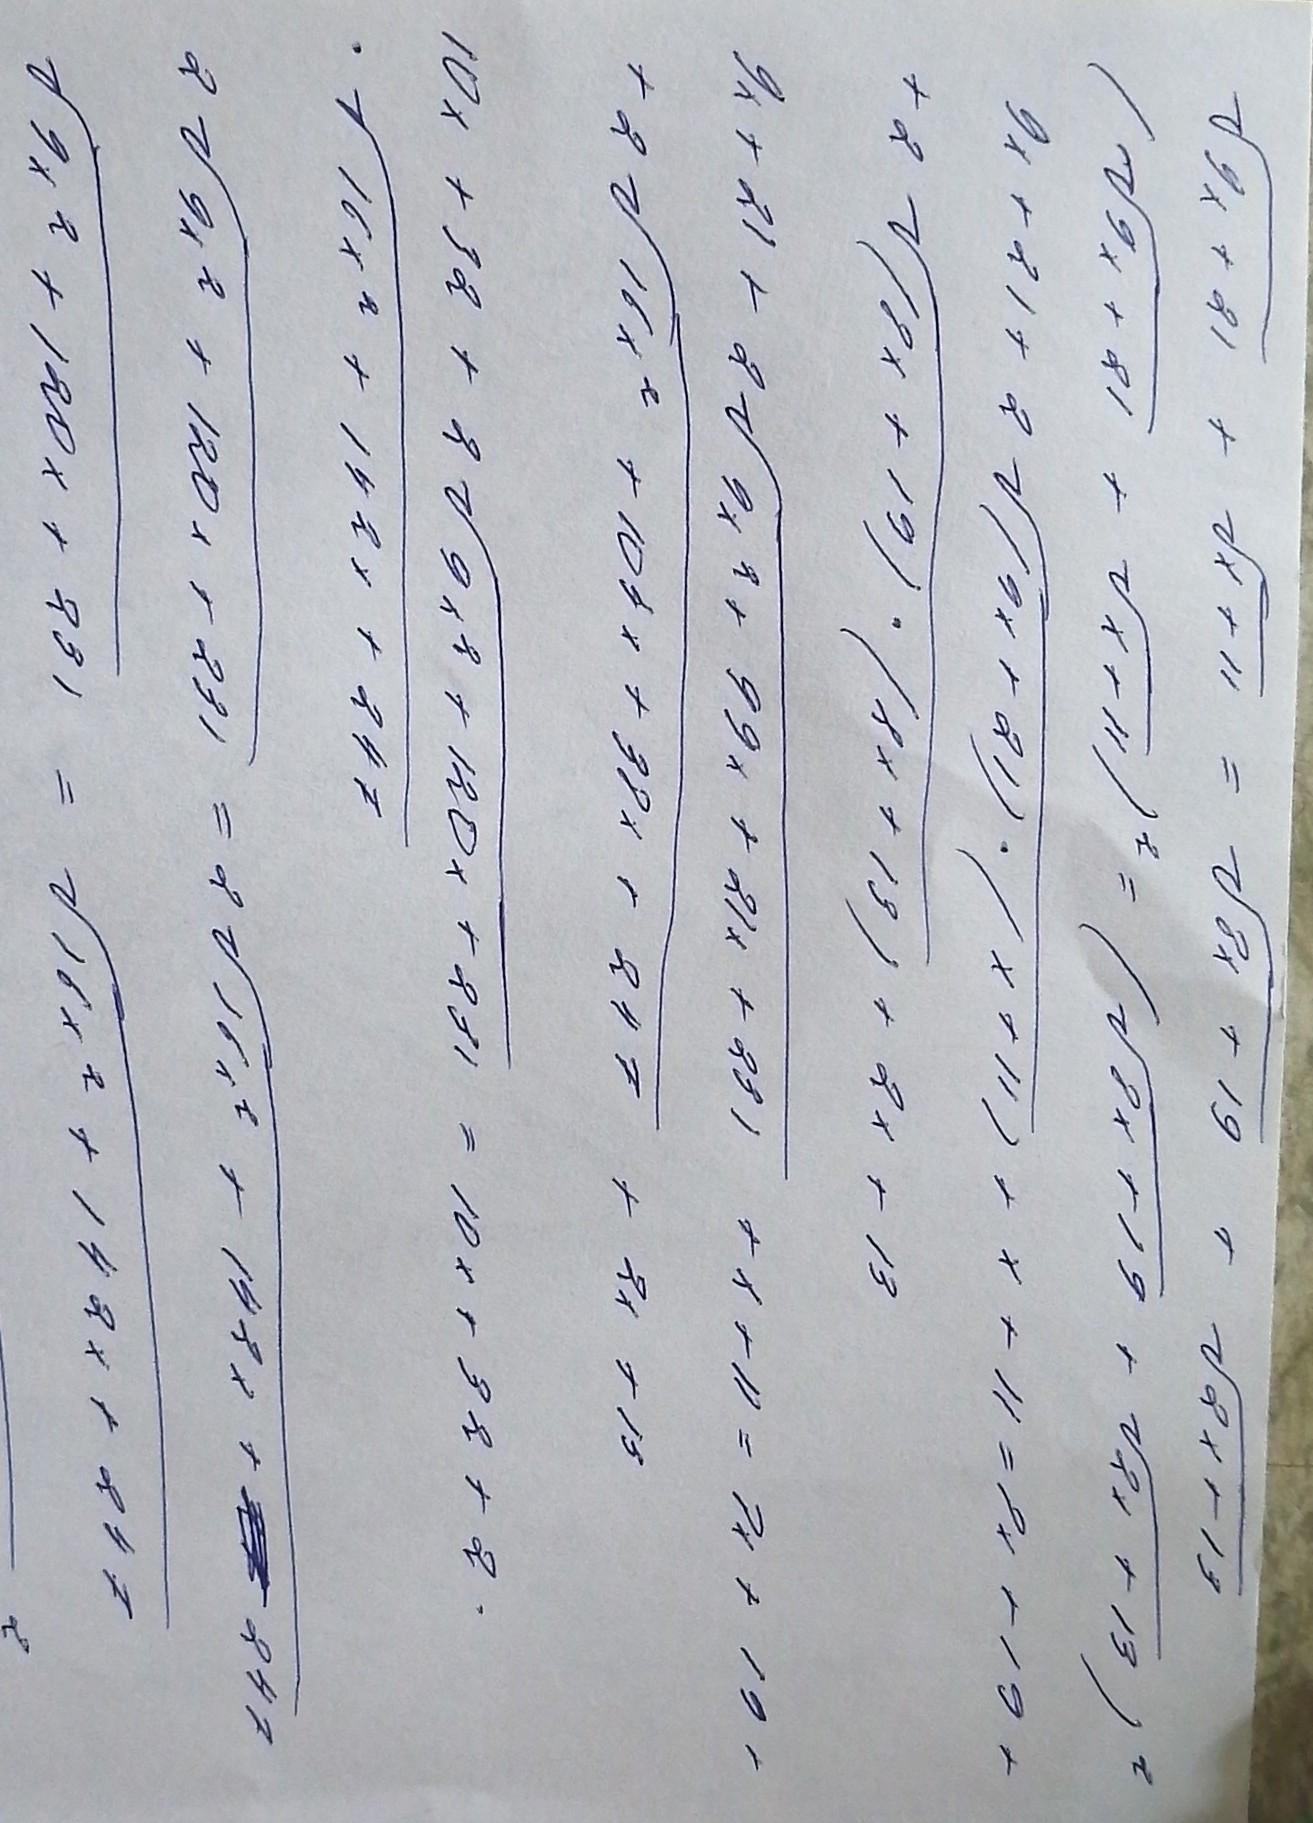 √(9x + 21) + √(x + 11) = √(8x + 19) + √(2x + 13)
(√(9x + 21) + √(x + 11))² = (√(8x + 19) + √(2x + 13))²
9x + 21 + 2√((9x + 21) · (x + 11)) + x + 11 = 8x + 19 +
+ 2√((8x + 19) · (2x + 13)) + 2x + 13
9x + 21 + 2√(9x² + 99x + 21x + 231) + x + 11 = 8x + 19 +
+ 2√(16x² + 104x + 38x + 247) + 2x + 13
10x + 32 + 2√(9x² + 120x + 231) = 10x + 32 + 2 ·
· √(16x² + 142x + 247)
2√(9x² + 120x + 231) = 2√(16x² + 142x + 247)
√(9x² + 120x + 231) = √(16x² + 142x + 247)